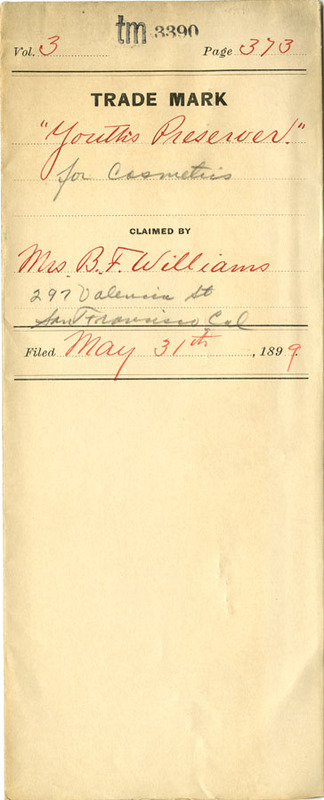 tm 3390
Vol. 3 Page 373
TRADE MARK
"Youth's Preserver."
for Cosmetics
CLAIMED BY
Mrs. B. F. Williams
297 Valencia St
San Francisco, Cal
Filed May 31th, 1899.